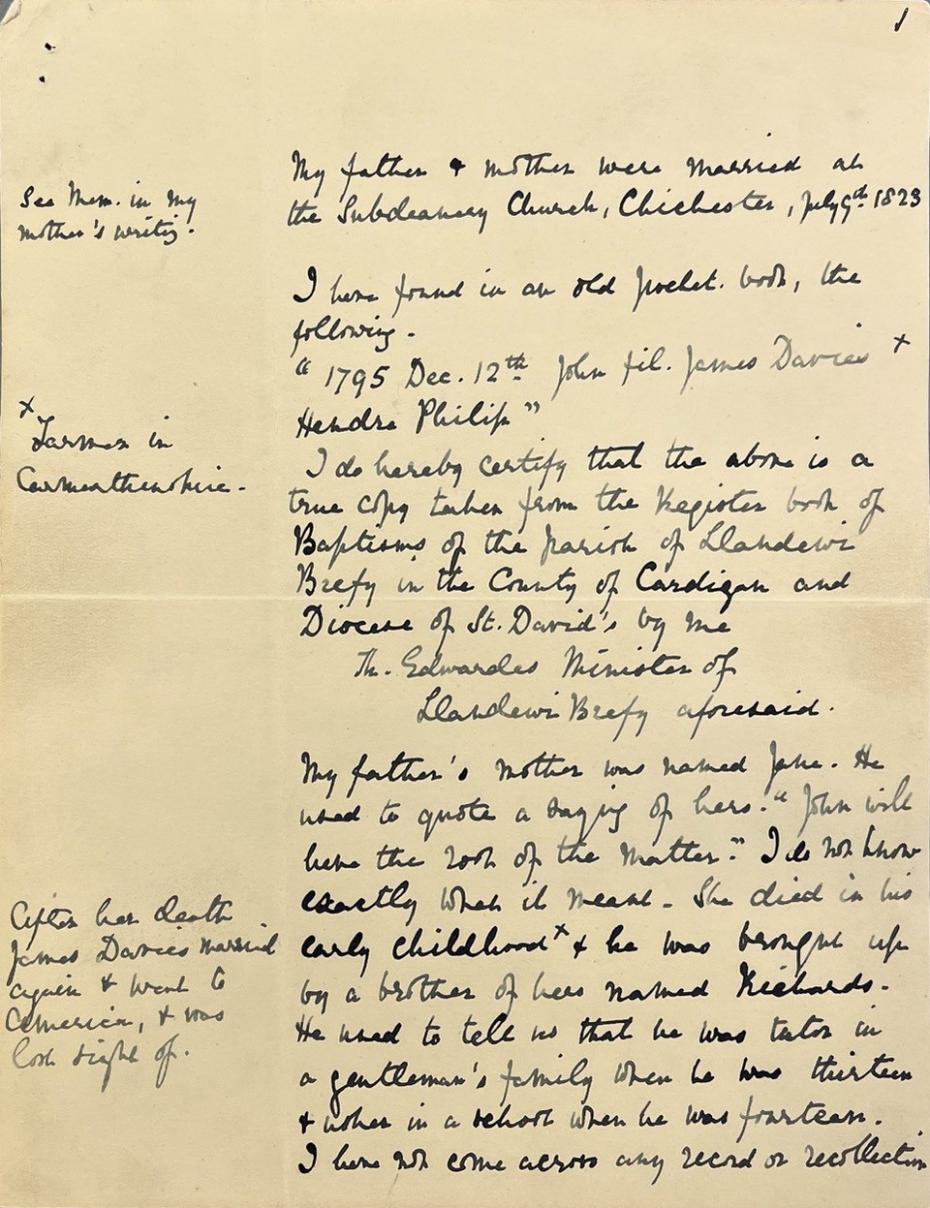 1
My father & mother were married at
the Subdeanery Church, Chichester, July 9th 1823
See Mem. in my
mother's writing.
I have found in an old pocket. book, the
following.
"1795 Dec. 12th John fil. James Davies x
Hendre Philip"
x
Farmer in
Carmarthenshire.
I do hereby certify that the above is a
true copy taken from the Register book of
Baptisms of the parish of Llandewi
Brefy in the County of Cardigan and
Diocese of St. David's by me
Th. Edwardes Minister of
Llandewi Brefy aforesaid.
My father's mother was named Jane. He
used to quote a saying of hers. "John will
have the root of the matter." I do not know
exactly what it meant. She died in his
early childhood x & he was brought up
by a brother of hers named Richards.
After her death
James Davies married
again & went to
America, & was
lost sight of.
He used to tell us that he was tutor in
a gentleman's family when he was thirteen
& usher in a school when he was fourteen.
I have not come across any record or recollection